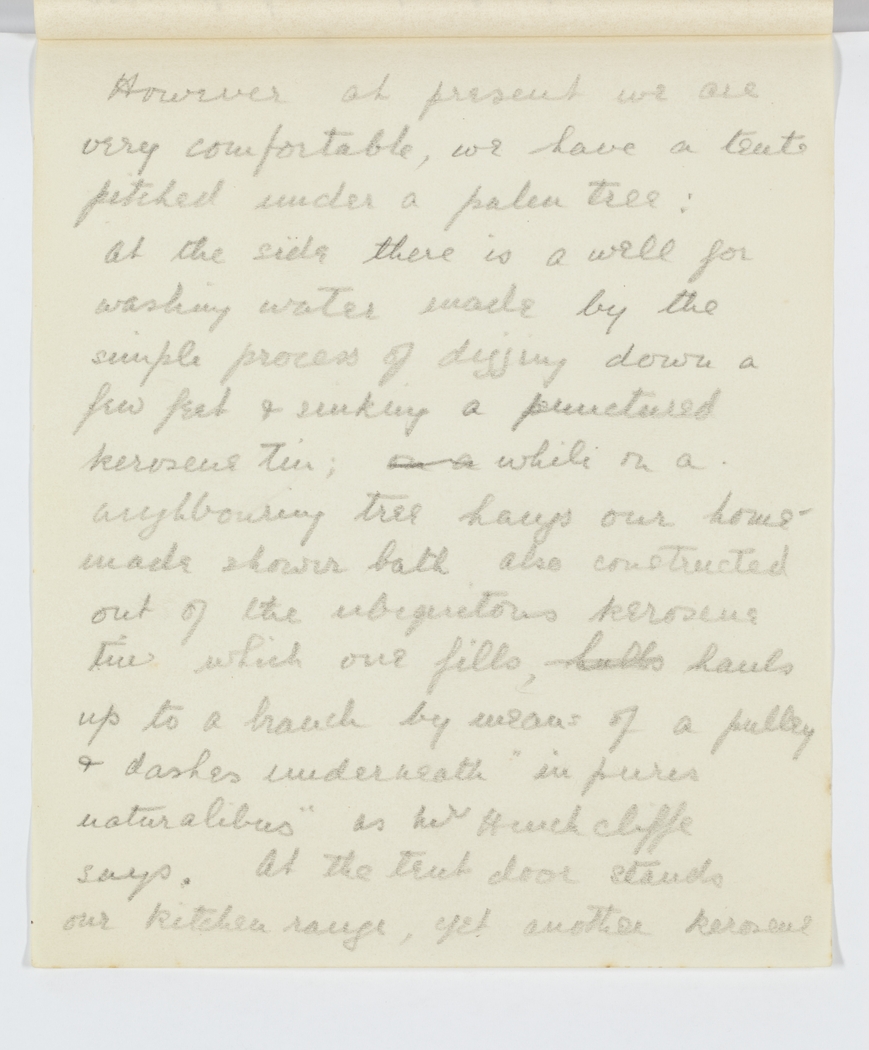 However at present we are
very comfortable, we have a tent
pitched under a palm tree:
At the side there is a well for
washing water made by the
simple process of digging down a
few feet & sinking a punctured
kerosene tin; on a while on a
neighbouring tree hangs our home-
made shower bath also constructed
out of the ubiquitous kerosene
tin which one fills, hauls
up to a branch by means of a pulley
& dashes underneath "in puris
naturalibus" as Mr Hinchcliffe
says. At the tent door stands
our kitchen range, yet another kerosene